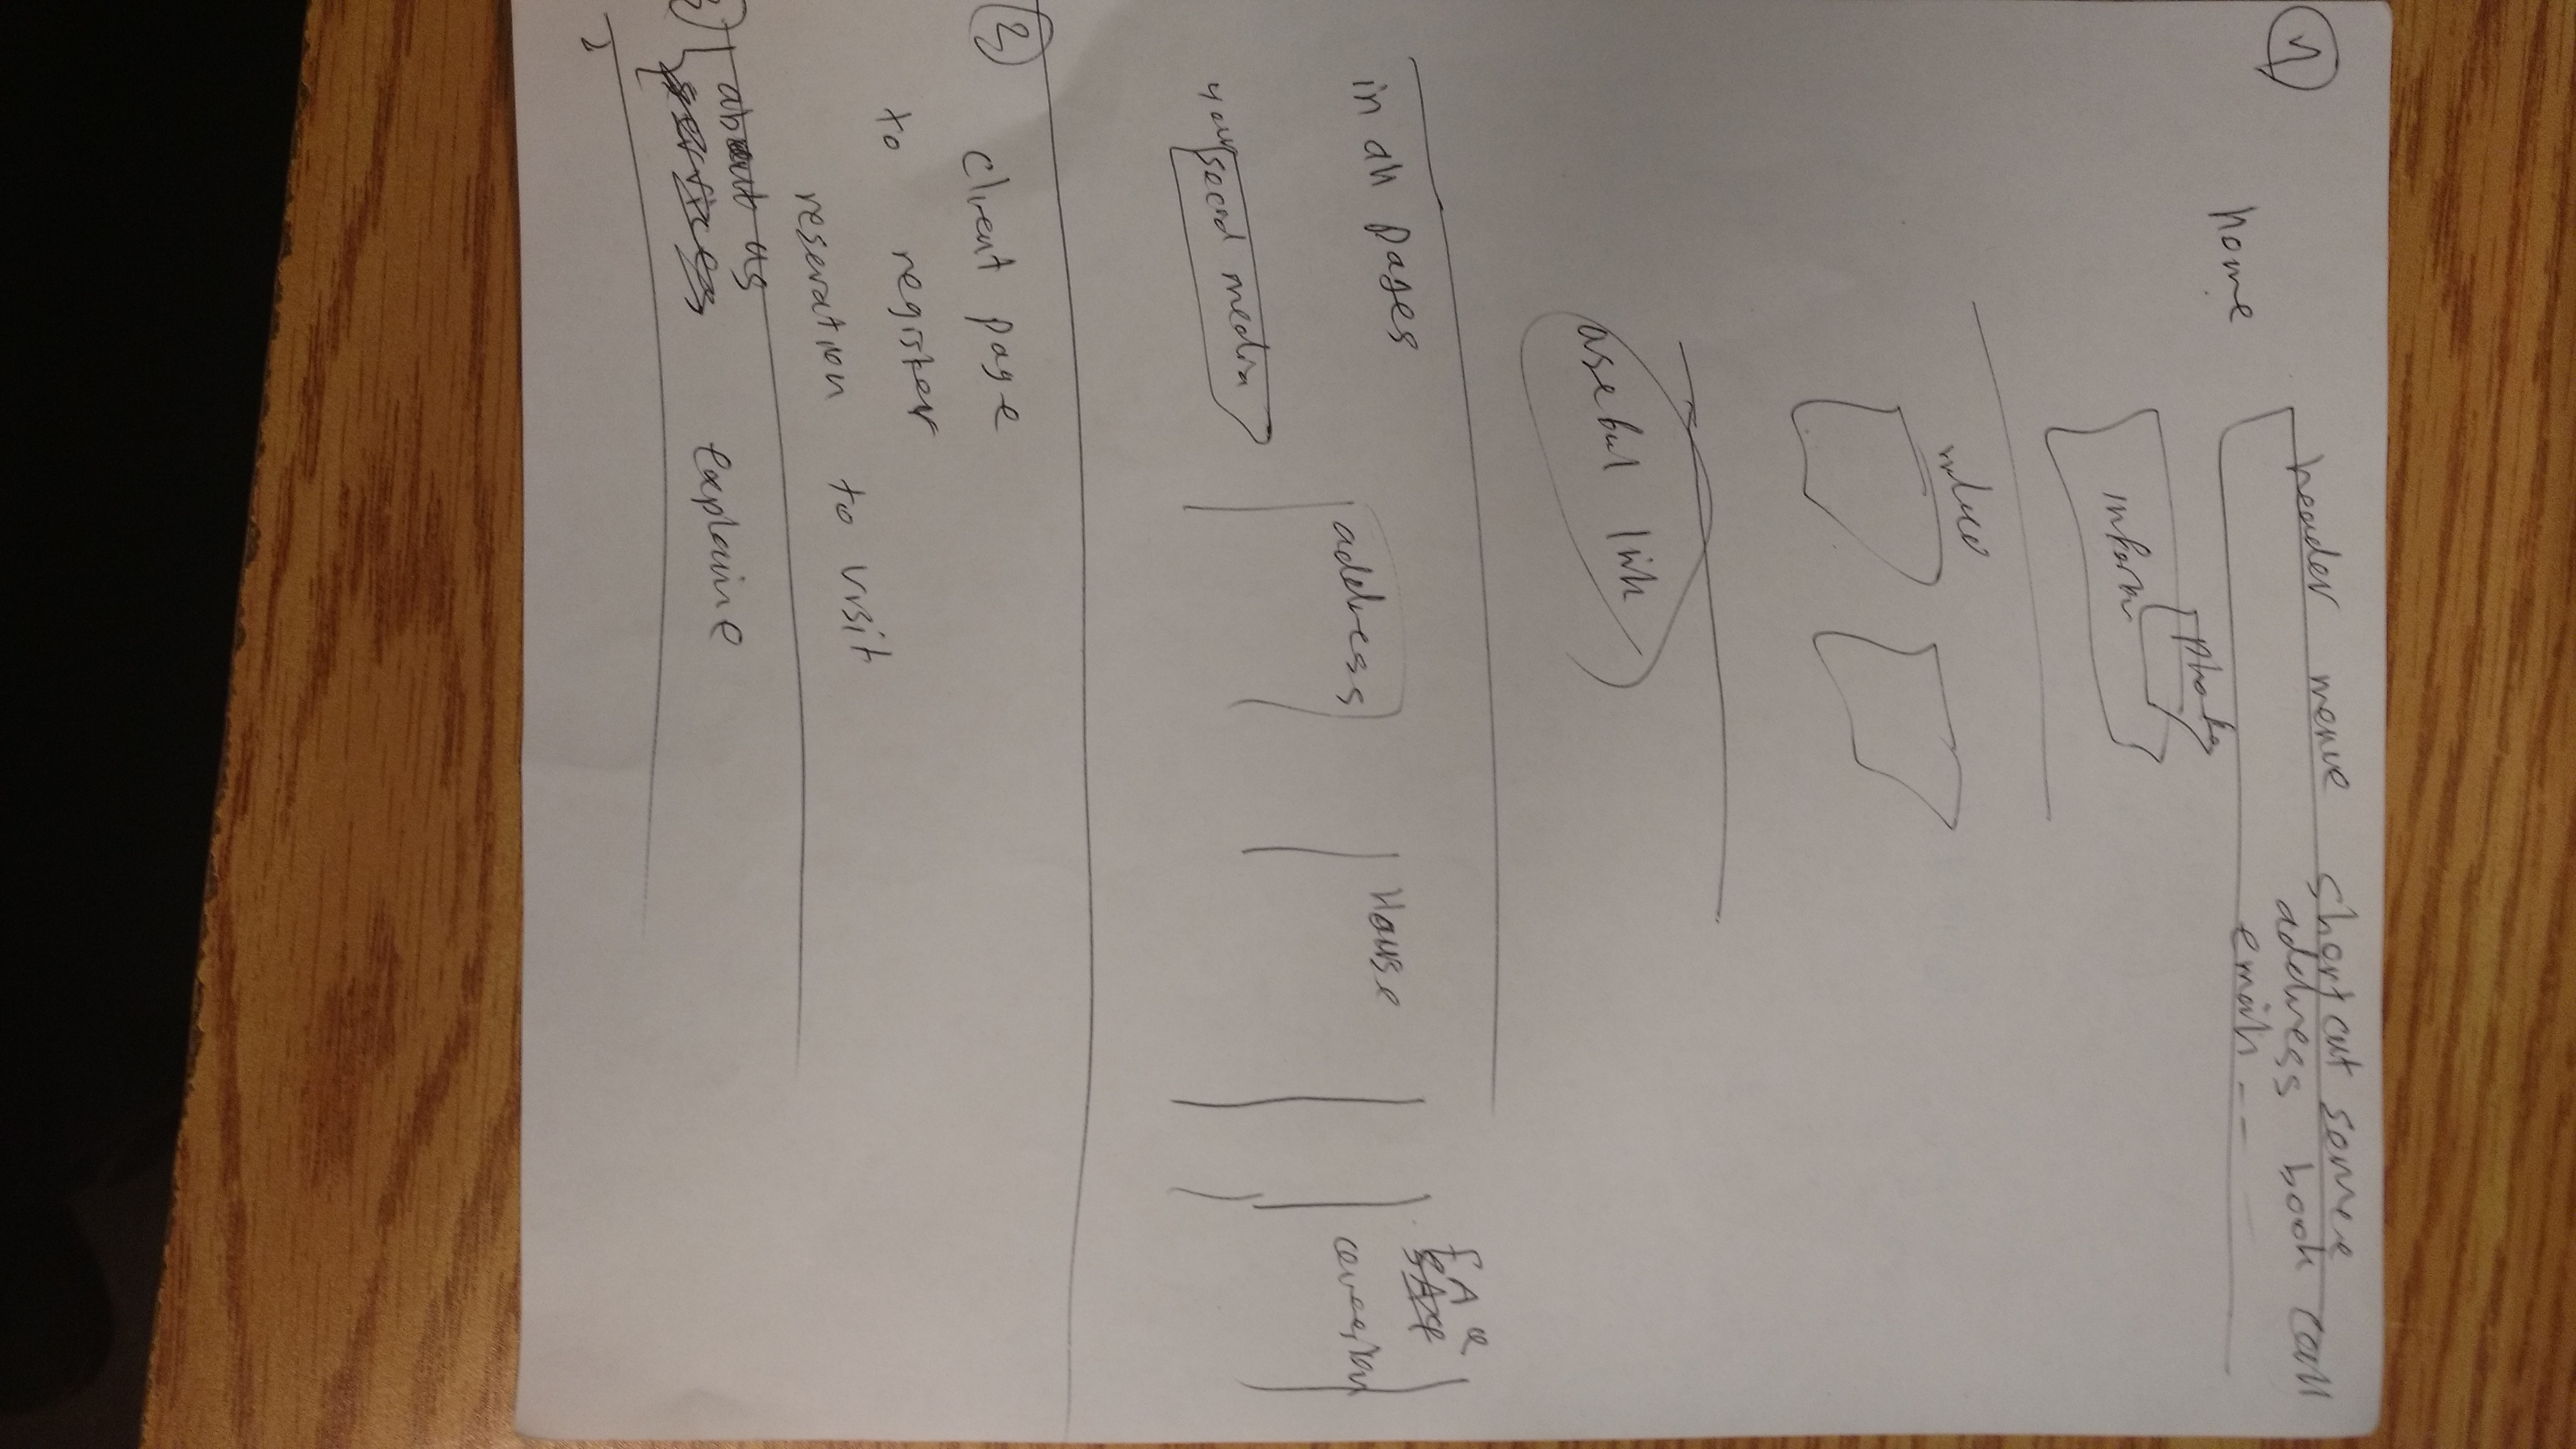 1
header menue shortcut
address book call
home
email --
photo
inform
video
useful link
in all pages
address
House
FAQ
question
your social media
3
client page
to register
reseration to visit
about us
services explaine
2